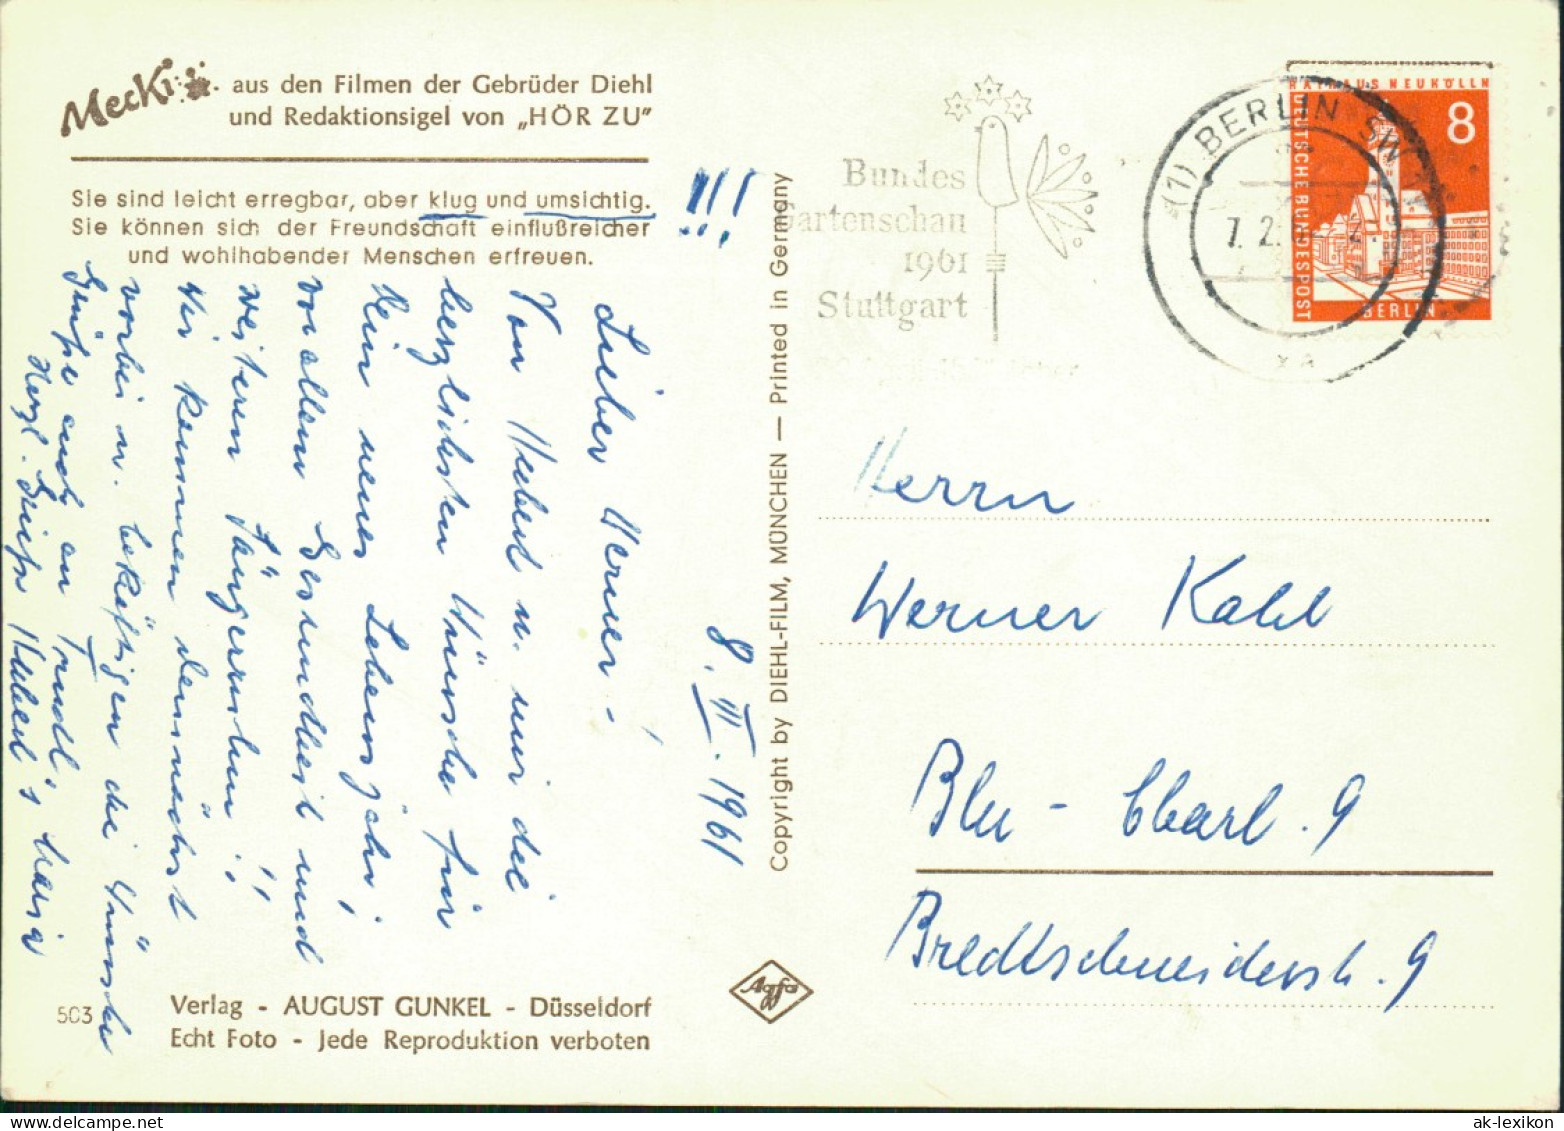 Mecki aus den Filmen der Gebrüder Diehl
und Redaktionsigel von „HÖR ZU"
Sie sind leicht erregbar, aber klug und umsichtig.
Sie können sich der Freundschaft einflußreicher
und wohlhabender Menschen erfreuen.
!!!
8. II. 1961
Lieber Werner -
Von Hubert u. mir die
herzlichsten Wünsche für
Dein neues Lebensjahr,
vor allem Gesundheit und
weiteren Sängerruhm!
Wir kommen demnächst
vorbei u. bekräftigen die Wünsche
Grüße auch an Trudl.
Herzl. Grüße Hubert's Maria
503
Verlag - AUGUST GUNKEL - Düsseldorf
Echt Foto - Jede Reproduktion verboten
Copyright by DIEHL-FILM, MÜNCHEN — Printed in Germany
Agfa
Bundes
gartenschau
1961
Stuttgart
(1) BERLIN SW
7. 2.
xa
RATHAUS NEUKÖLLN
8
DEUTSCHE BUNDESPOST
BERLIN
Herrn
Werner Kahl
Bln - Charl. 9
Bredtschneiderstr. 9
ak-lexikon